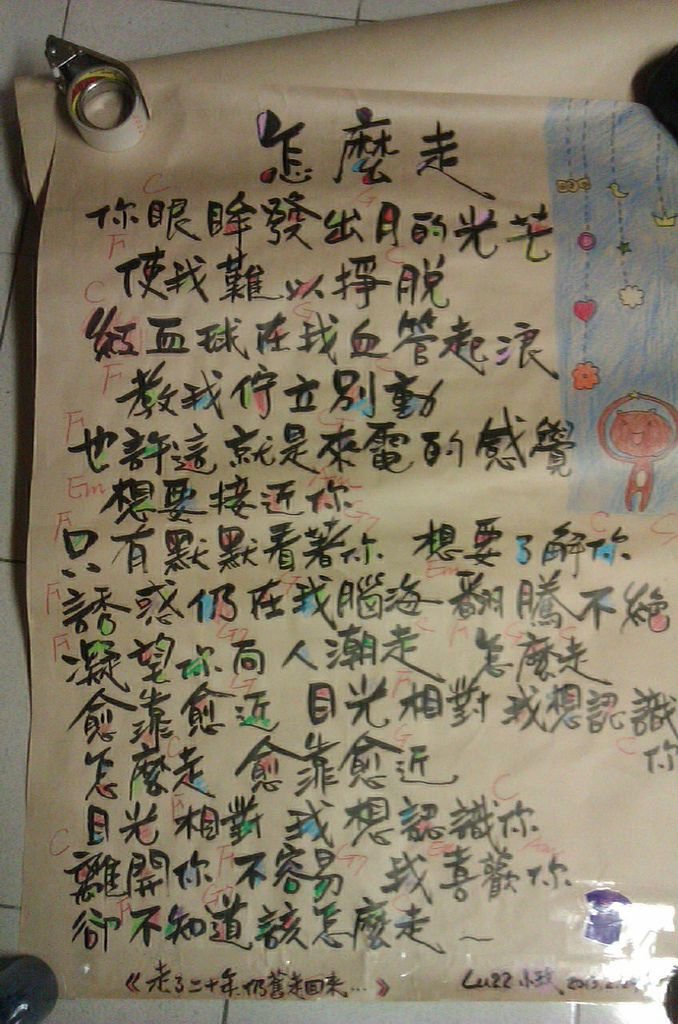 怎麼走
你眼眸發出月的光芒
使我難以掙脫
紅血球在我血管起浪
教我佇立別動
也許這就是來電的感覺
想要接近你
只有默默看著你 想要了解你
誘惑仍在我腦海翻騰不絕
凝望你向人潮走 怎麼走
愈靠愈近 目光相對 我想認識
你
怎麼走 愈靠愈近
目光相對 我想認識你
離開你 不容易 我喜歡你
卻不知道該怎麼走~
《走了二十年仍舊走回來...》 Luzz 小